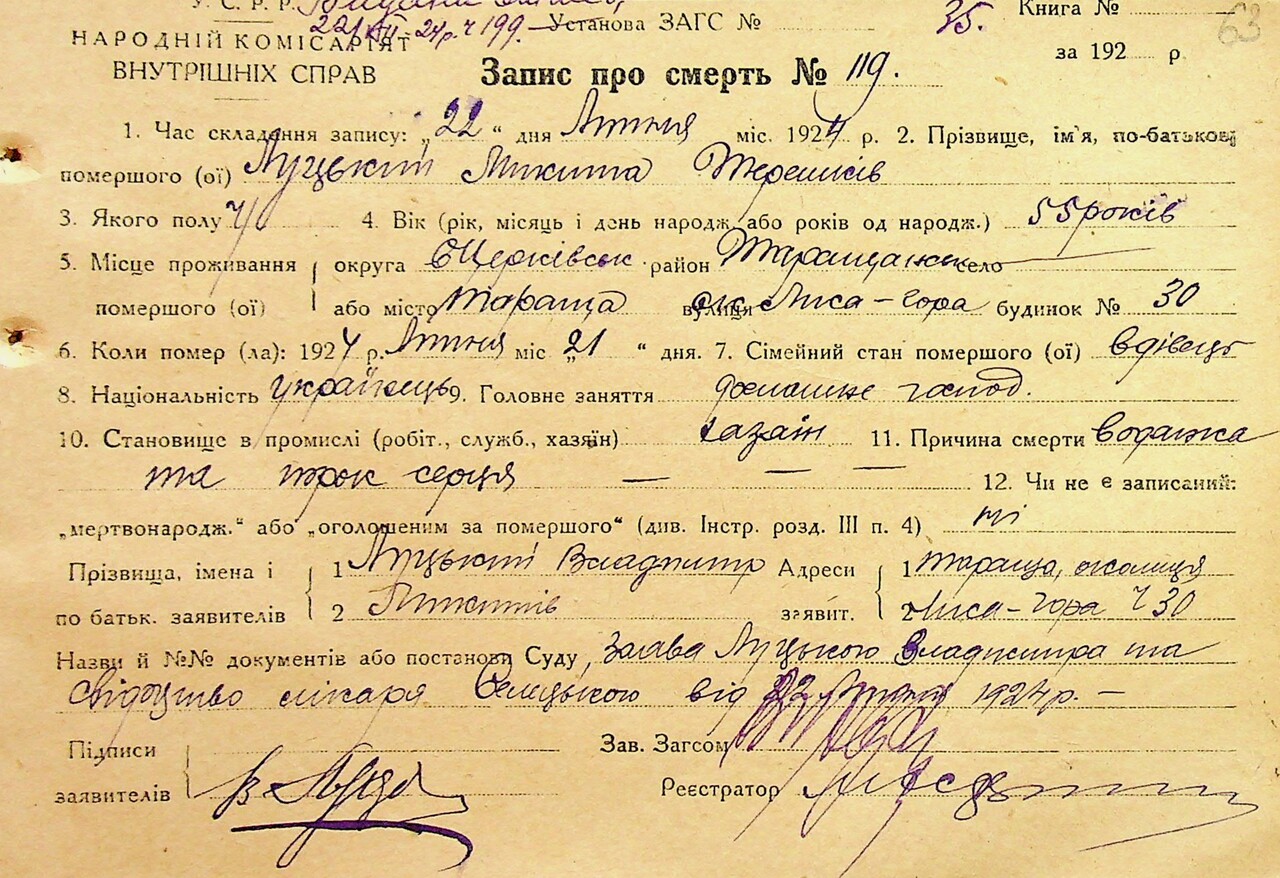 У. С. Р. Р. Видано
22/VII-24р. ч 199. Установа ЗАГС № 35. Книга № 63
НАРОДНІЙ КОМІСАРІЯТ за 192 р
ВНУТРІШНІХ СПРАВ Запис про смерть № 119.
1. Час складення запису: „22“ дня Липня міс. 1924 р. 2. Прізвище, ім'я, по-батькові
помершого (ої) Луцький Микита Терешків
3. Якого полу Ч/ 4. Вік (рік, місяць і день народж. або років од народж.) 55 років
5. Місце проживання округа БЦерківськ район Таращанськ село
помершого (ої) або місто Тараща вулиця ок. Лиса-Гора будинок № 30
6. Коли помер (ла): 1924 р. Липня міс „21“ дня. 7. Сімейний стан помершого (ої) вдівець
8. Національність українець 9. Головне заняття домашнє господ.
10. Становище в промислі (робіт., служб., хазяїн) хазяїн 11. Причина смерти водянка
та порок серця — — — 12. Чи не є записаний:
„мертвонародж.“ або „оголошеним за помершого“ (див. Інстр. розд. III п. 4) ні
Прізвища, імена і 1 Луцький Владимир Адреси 1 Тараща, околиця
по батьк. заявителів 2 Микитів заявит. 2 Лиса-Гора ч 30
Назви й №№ документів або постанови Суду, Заява Луцького Владимира та
свідоцтво лікаря від 22 Липня 1924 р. —
Підписи Зав. Загсом
заявителів В Луц Реєстратор